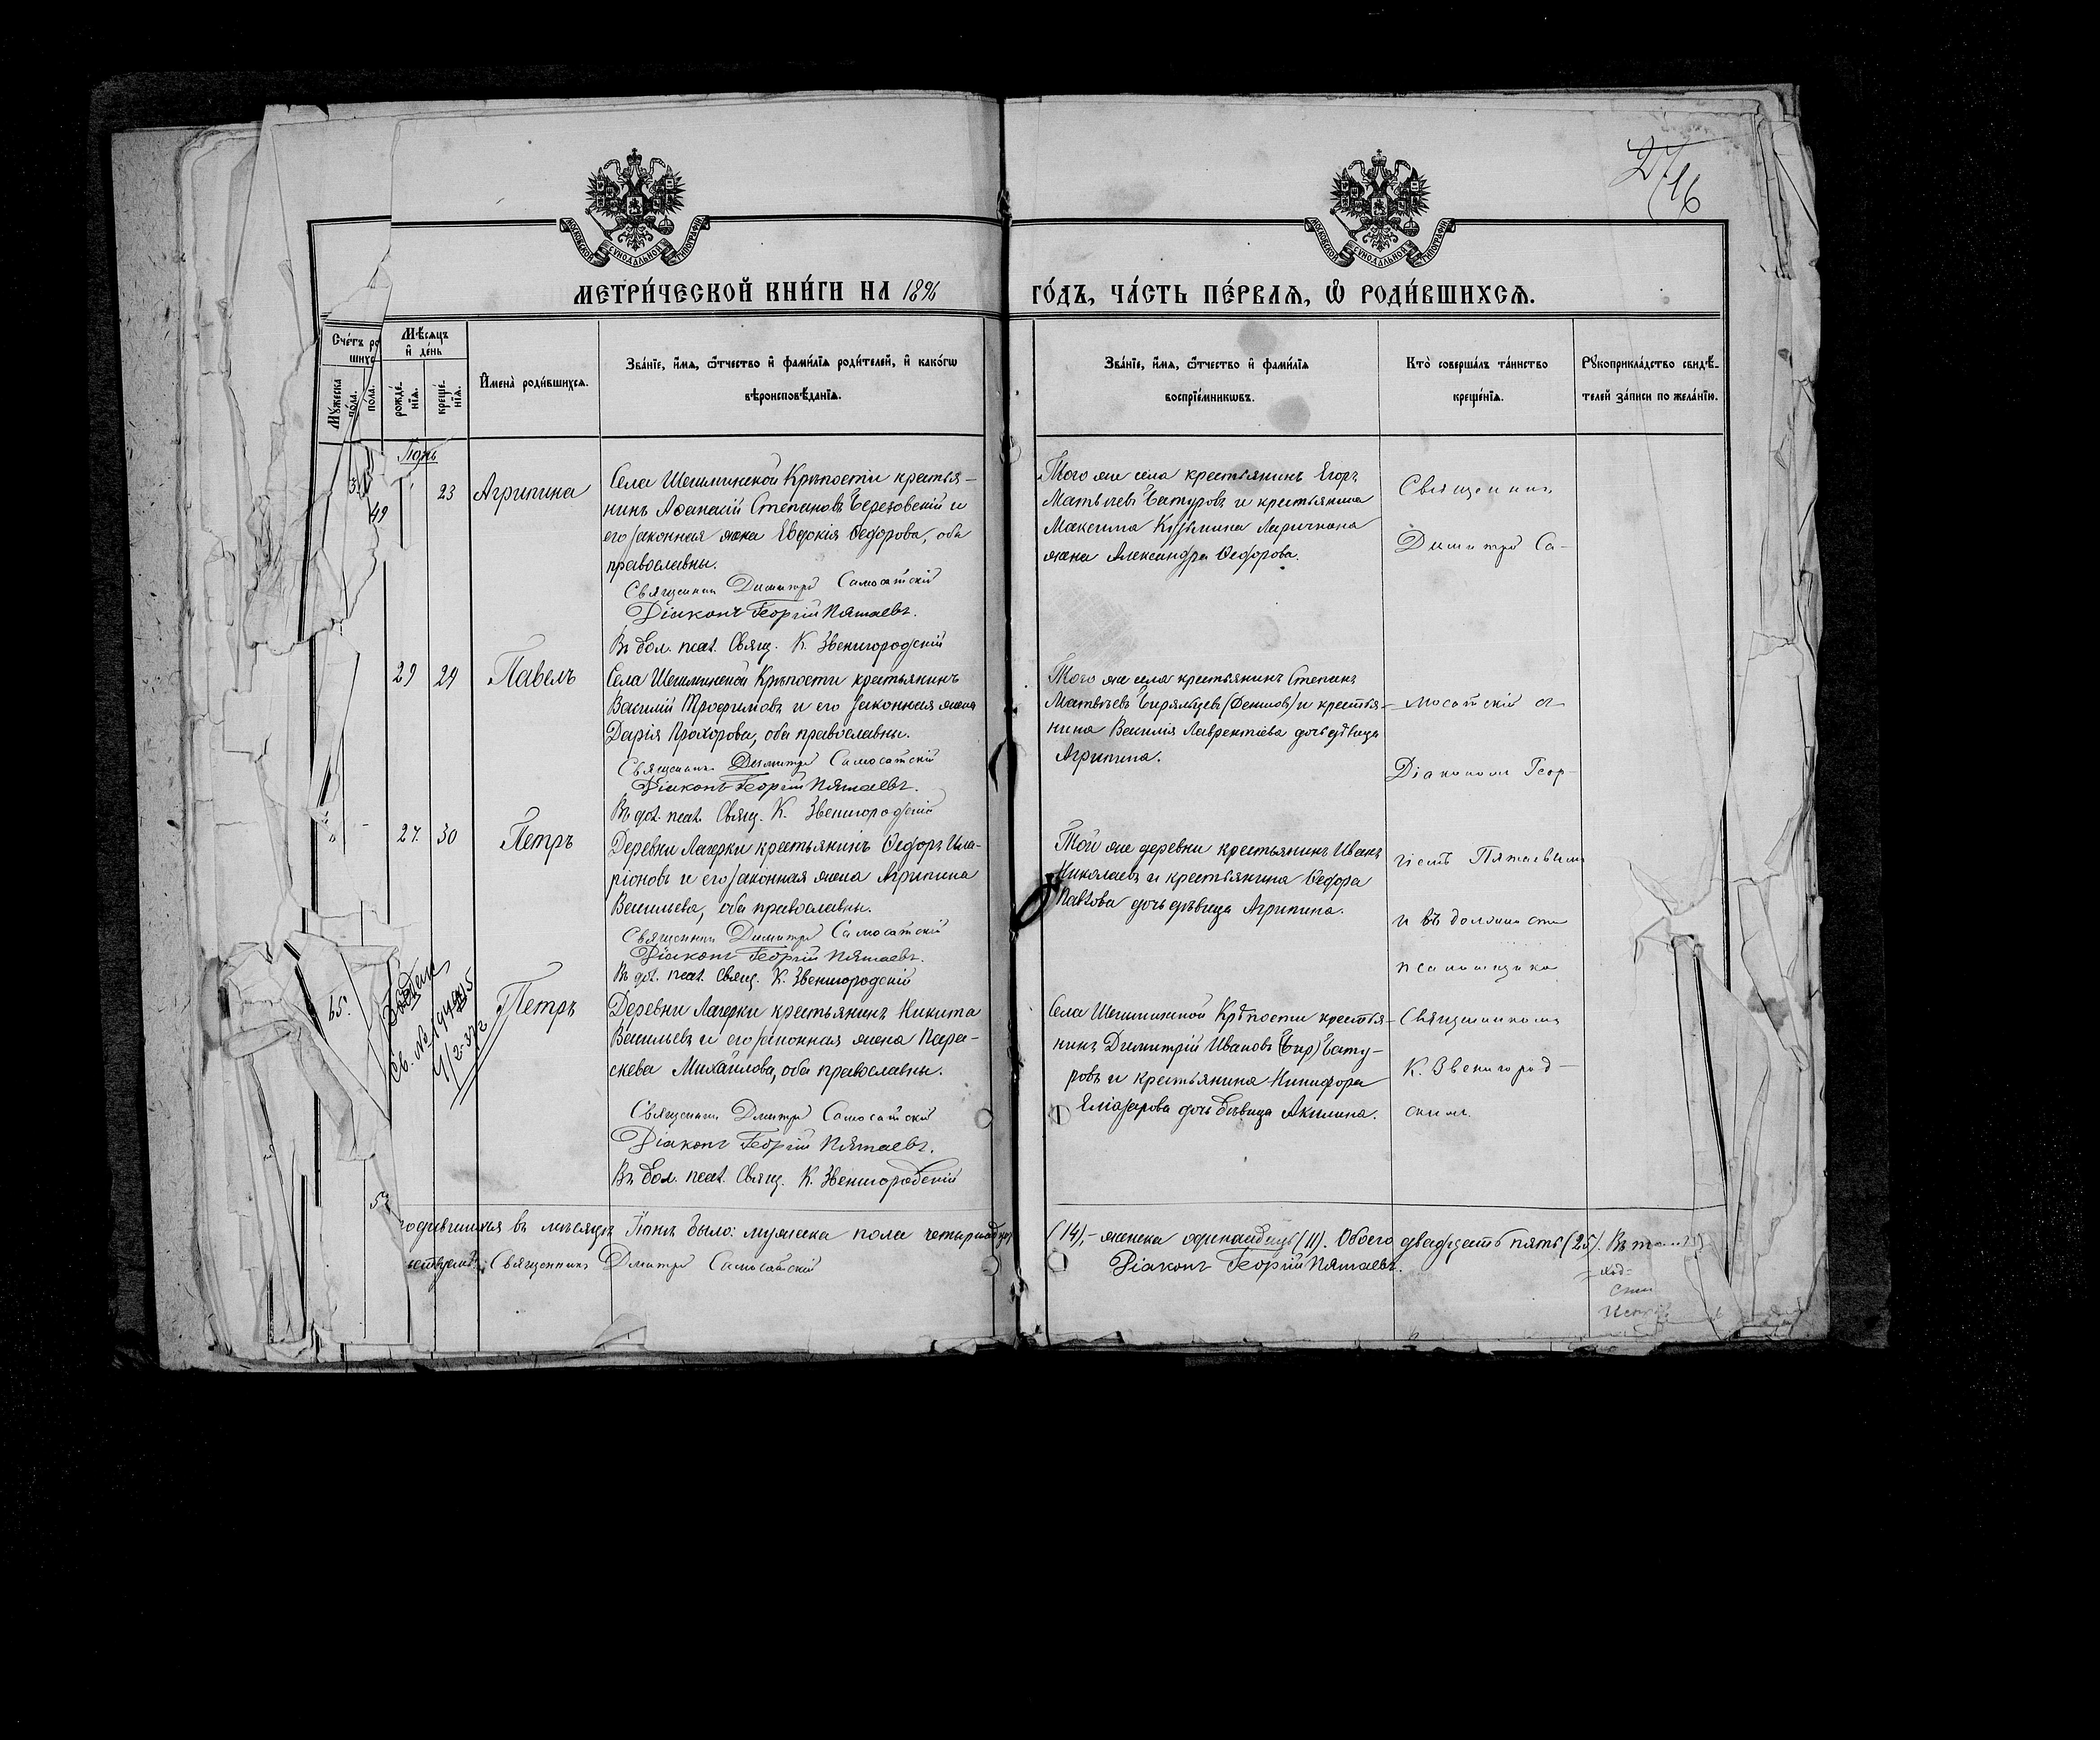 27
16
МОСКОВСКОЙ СѴНОДАЛЬНОЙ ТИПОГРАФІИ
МОСКОВСКОЙ СѴНОДАЛЬНОЙ ТИПОГРАФІИ
МЕТРИ́ЧЕСКОЙ КНИ́ГИ НА 1896
ГО́ДЪ, ЧА́СТЬ ПЕ́РВАЯ, Ѡ РОДИ́ВШИХСЯ.
Сче́тъ ро
шихс
Мѣсяцъ и де́нь
Мꙋжеска по́ла.
по́ла.
рожде́нїя.
креще́нїя.
Имена̀ роди́вшихся.
Зва́нїе, и́мя, ѻ҆́тчество и фами́лїя роди́телей, и како́гѡ
вѣроисповѣ́данїя.
Зва́нїе, и́мя, ѻ҆́тчество и фами́лїя
воспрїе́мникѡвъ.
Кто̀ соверша́лъ та́инство
креще́нїя.
Рꙋкоприкла́дство свидѣ́-
телей за́писи по жела́нїю.
Іюнь
49
23
Агрипина
Села Шешминской Крѣпости крестья-
нинъ Аѳанасій Степановъ Березовскій и
его законная жена Евдокія Ѳедорова, оба
православны.
Священникъ Димитрій Самосатскій
Діаконъ Георгій Пятаевъ.
Въ дол. псал. Свящ. К. Звенигородскій
Того же села крестьянинъ Егоръ
Матвѣевъ Батуровъ и крестьянина
Максима Кузьмина Ларичкина
жена Александра Ѳедорова.
Священникъ
Димитрій Са-
29
29
Павелъ
Села Шешминской Крѣпости крестьянинъ
Василій Трофимовъ и его законная жена
Дарія Прохорова, оба православны.
Священникъ Димитрій Самосатскій
Діаконъ Георгій Пятаевъ.
Въ дол. псал. Свящ. К. Звенигородскій
Того же села крестьянинъ Степанъ
Матвѣевъ и крестья-
нина Василія Лаврентіева дочь дѣвица
Агрипина.
мосатскій съ
Діакономъ Геор-
27
30
Петръ
Деревни Лагерки крестьянинъ Ѳедоръ Ила-
ріоновъ и его законная жена Агрипина
Васильева, оба православны.
Священникъ Димитрій Самосатскій
Діаконъ Георгій Пятаевъ.
Въ дол. псал. Свящ. К. Звенигородскій
Той же деревни крестьянинъ Иванъ
Николаевъ и крестьянина Ѳедора
Павлова дочь дѣвица Агрипина.
гіемъ Пятаевымъ
и въ должности
псаломщика
65.
Петръ
Деревни Лагерки крестьянинъ Никита
Васильевъ и его законная жена Пара-
скева Михайлова, оба православны.
Священникъ Дмитрій Самосатскій
Діаконъ Георгій Пятаевъ.
Въ дол. псал. Свящ. К. Звенигородскій
Села Шешминской Крѣпости крестья-
нинъ Димитрій Ивановъ (Бир) Бату-
ровъ и крестьянина Никифора
Еліазарова дочь дѣвица Акилина.
Священникомъ
К. Звенигород-
скимъ.
родившихся въ мѣсяцѣ Іюнѣ было: мужска пола четырнадцать
(14),- женска одинадцать (11). Обоего двадцать пять (25).
Священникъ Дмитрій Самосатскій
Діаконъ Георгій Пятаевъ.